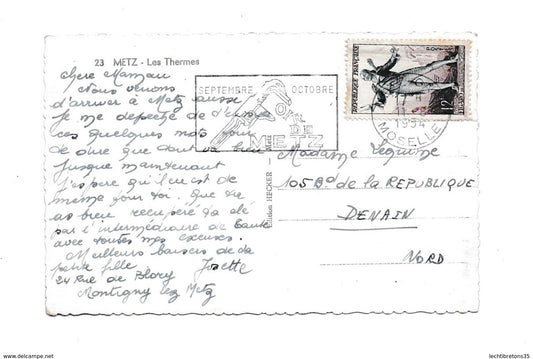 23 METZ - Les Thermes
chère Maman
Nous venons
d'arriver à Metz aussi
je me depeche de t'
ces quelques mots pour
te dire que tout va bien
jusque maintenant
j'espere qu'il en est de
même pour toi. Que
as bien recupere ta clé
par l'intermédiaire de
avec toutes mes excuses.
Meilleurs baisers de ta
petite fille Josette
24 Rue de Blory
Montigny lez Metz
Edition HECKER - Metz
SEPTEMBRE OCTOBRE
FOIRE
DE
METZ
1954
MOSELLE
REPUBLIQUE FRANÇAISE
12F
POSTES
Madame Lequime
105 Bd de la REPUBLIQUE
DENAIN
NORD
www.delcampe.net
lechtibretons35